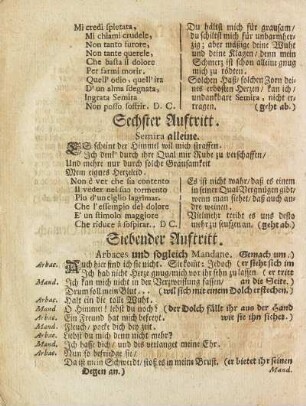 Mi credi spietata,
Mi chiami crudele,
Non tanto furore,
Non tante querele,
Che basta il dolore
Per farmi morir.
Quell' odio, quell' ira
D' un alma sdegnata,
Ingrata Semira
Non posso soffrir. D. C.
Du hältst mich für grausam/
du schiltst mich für unbarmher-
zig; aber mäßige deine Wuht
und deine Klagen/ denn mein
Schmertz ist schon alleine gnug
mich zu tödten.
Solchen Haß/ solchen Zorn dei-
nes erbosten Hertzen/ kan ich/
undanckbare Semira, nicht er-
tragen. (geht ab.)
Sechster Auftritt.
Semira alleine.
ES scheint der Himmel will mich straffen.
Ich denck' durch ihre Qual mir Ruhe zu verschaffen/
Und mehre nur durch solche Grausamkeit
Mein eignes Hertzeleid.
Non è ver che sia contento
Il veder nel suo tormento
Più d'un ciglio lagrimar.
Che l'essempio del dolore
E'un stimolo maggiore
Che riduce à sospirar. D. C.
Es ist nicht wahr/ daß es einem
in seiner Qual Vergnügen gibt/
wenn man siehet/ daß auch an-
dre weinen.
Vielmehr treibt es uns desto
mehr zu seuffzen. (geht ab.)
Siebender Auftritt.
Arbaces und sogleich Mandane. (Gemach um.)
Arbac. Auch hier find ich sie nicht. Sie komt: Jedoch (er siehe sich um
Ich hab nicht Hertz gnug/ mich vor ihr sehn zu lassen (er tritt
Mand. Ich kan mich nicht in der Verzweiflung fassen/ an die Seite.
Drum soll mein Blut... (will sich mit einem Dolch erstechen.)
Arbac. Halt ein die tolle Wuht.
Mand. O Himmel! lebst du noch? (der Dolch fällt ihr aus der Hand
Arbac. Ein Freund hat mich befreyt. wie sie ihn siehet.)
Mand. Fleuch/ packe dich bey zeit.
Arbac. Liebst du mich denn nicht mehr?
Mand. Ich hasse dich/ und diß verlanget meine Ehr.
Arbac. Nun so befriedge sie/
Da ist mein Schwerdt/ stoß es in meine Brust. (er bietet ihr seinen
Degen an.) Mand.